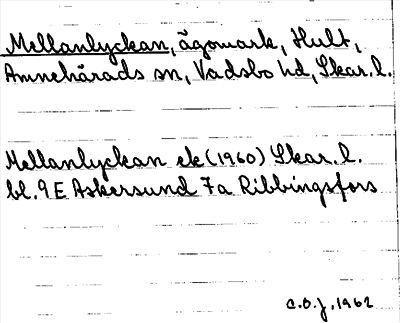 Mellanlyckan, ägomark, Hult,
Amnehärads sn, Vadsbo hd, Skar. l.
Mellanlyckan ek (1960) Skar. l.
bl. 9E Askersund 7a Ribbingsfors
C.O.J. 1962